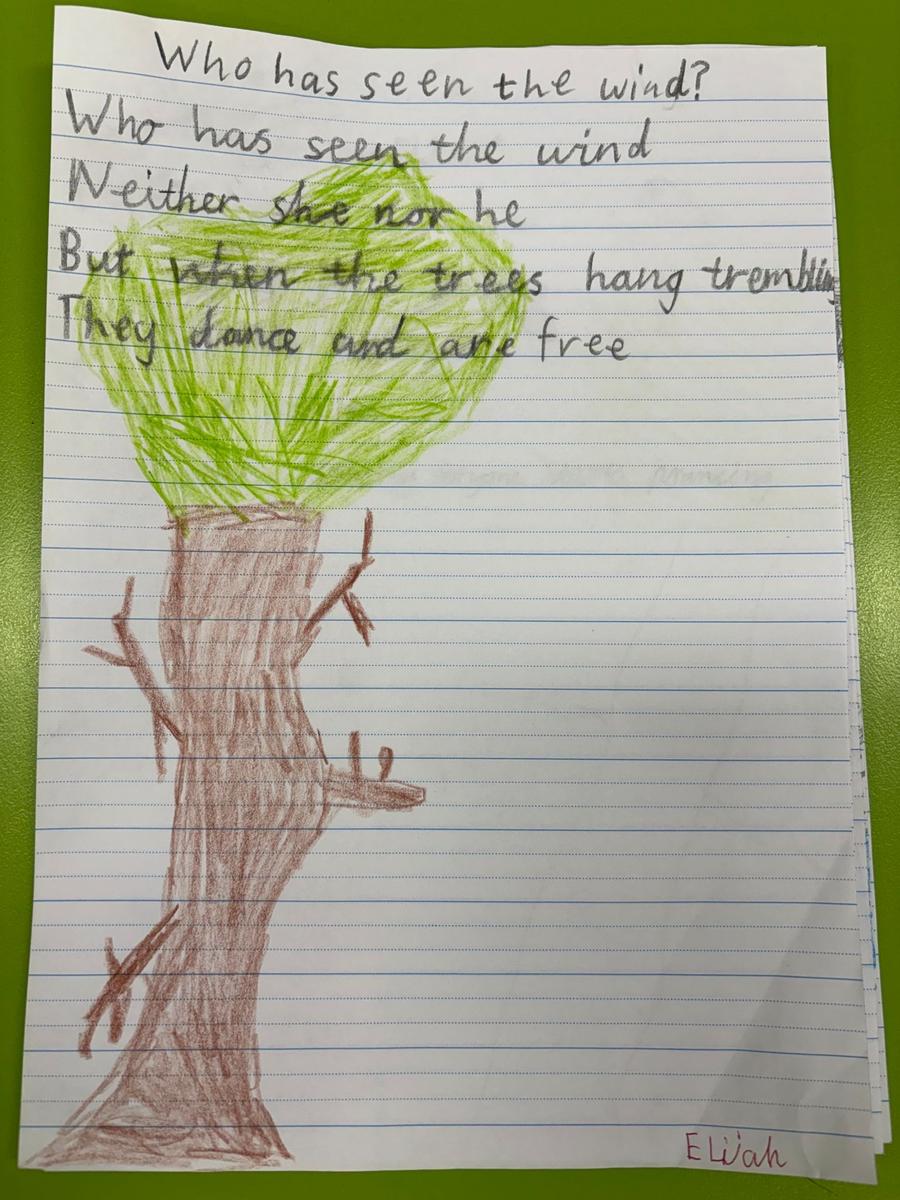 Who has seen the wind?
Who has seen the wind
Neither she nor he
But when the trees hang trembling
They dance and are free
ELijah